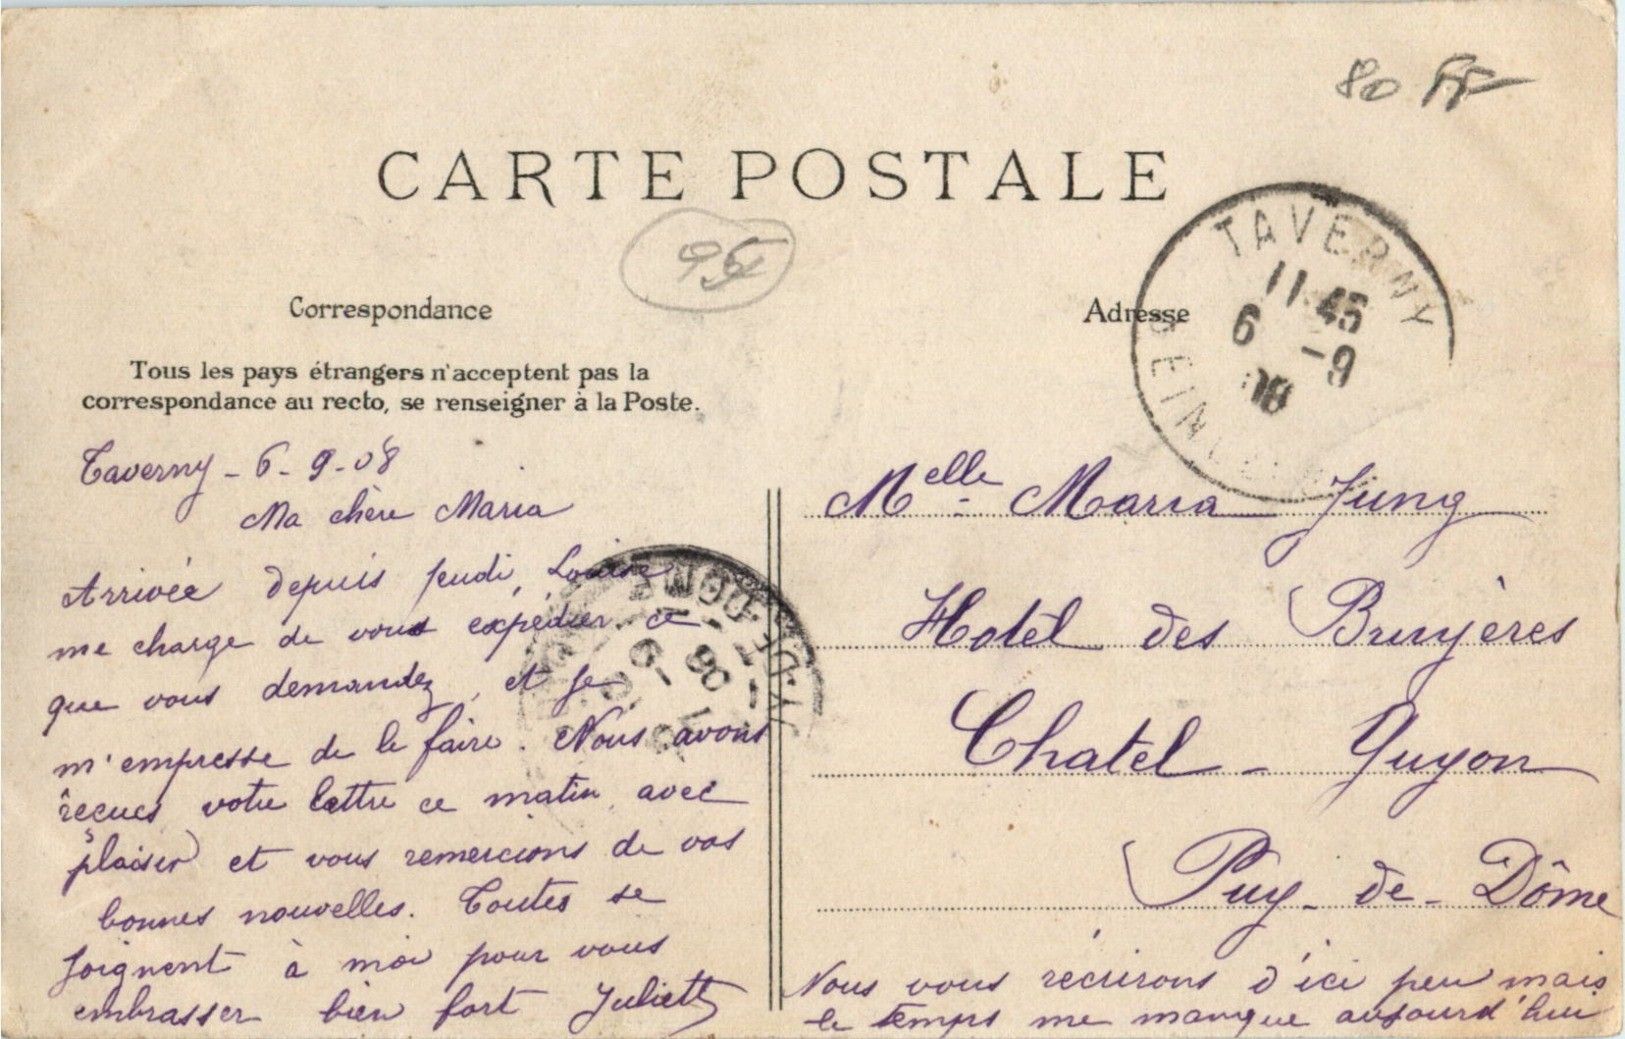 80 FF
CARTE POSTALE
95
Correspondance
Tous les pays étrangers n'acceptent pas la
correspondance au recto, se renseigner à la Poste.
Taverny - 6 - 9 - 08
Ma chère Maria
Arrivée depuis jeudi, Louise
me charge de vous expédier ce
que vous demandez, et je
m'empresse de le faire. Nous avons
reçues votre lettre ce matin avec
plaisir et vous remercions de vos
bonnes nouvelles. Toutes se
joignent à moi pour vous
embrasser bien fort Juliette
Adresse
TAVERNY
11 45
6 - 9
08
Melle Maria Jung
Hotel des Bruyères
Chatel - Guyon
Puy - de - Dôme
Nous vous récrirons d'ici peu mais
le temps me manque aujourd'hui
DOME
08